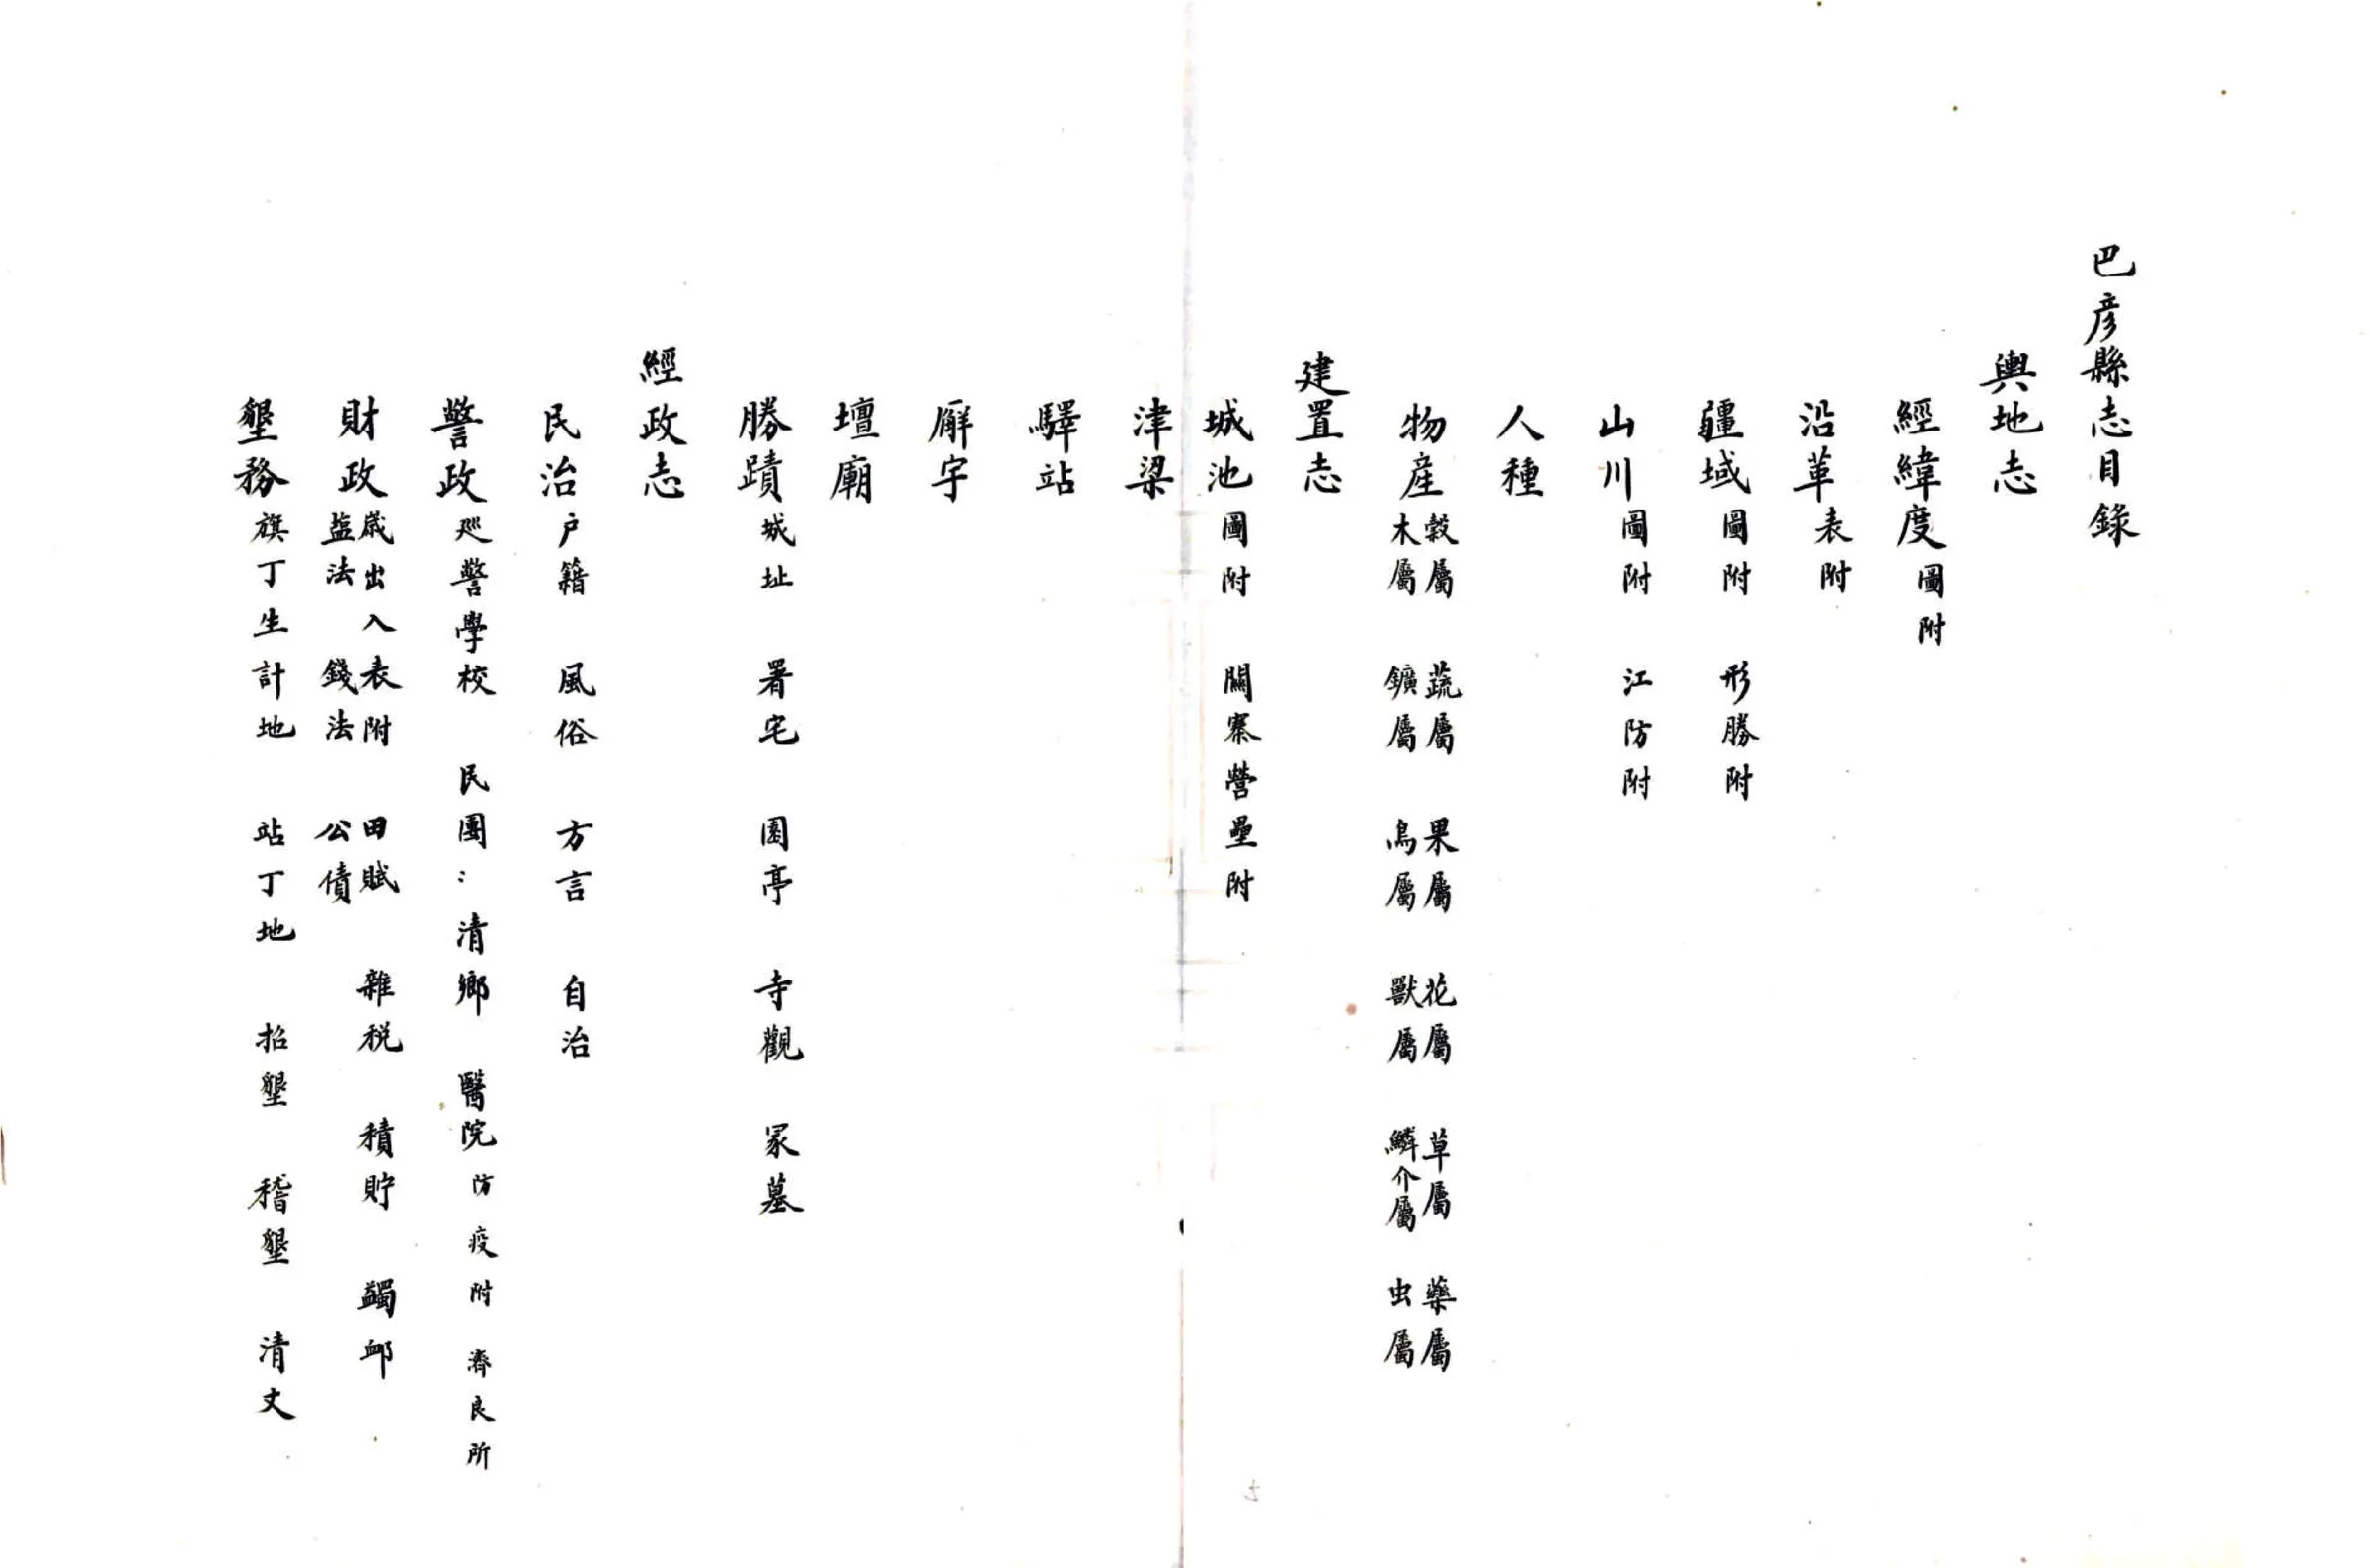 巴彥縣志目錄
輿地志
經緯度圖附
沿革表附
疆域圖附 形勝附
山川圖附 江防附
人種
物產穀屬 蔬屬 果屬 花屬 草屬 藥屬
木屬 鑛屬 鳥屬 獸屬 鱗介屬 虫屬
建置志
城池圖附 關寨營壘附
津梁
驛站
廨宇
壇廟
勝蹟城址 署宅 園亭 寺觀 冢墓
經政志
民治户籍 風俗 方言 自治
警政巡警學校 民團：清鄉 醫院防疫附 濟良所
財政歲出入表附 田賦 雜税 積貯 蠲卹
塩法 錢法 公債
墾務旗丁生計地 站丁地 招墾 稽墾 清丈